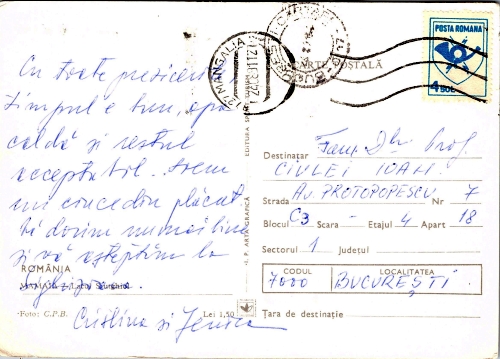 Cu toate prezicerile
timpul e bun, apa
caldă și restul
acceptabil. Avem
un concediu plăcut
îți dorim numai bine
și vă așteptăm la
Sighișoara.
Cristina și Jenica
ROMÂNIA
MAMAIA - Lacul Siutghiol
Foto: C.P.B.
Lei 1,50
I. P. ARTA GRAFICĂ
EDITURA SPORT TURISM
MANGALIA
CARTE POSTALĂ
POSTA ROMANA
4
Destinatar Fam. Dlui Prof.
CIULEI IOAN
Strada AV PROTOPOPESCU Nr 7
Blocul C3 Scara - Etajul 4 Apart 18
Sectorul 1 Județul
CODUL LOCALITATEA
7000 BUCUREȘTI
Țara de destinație